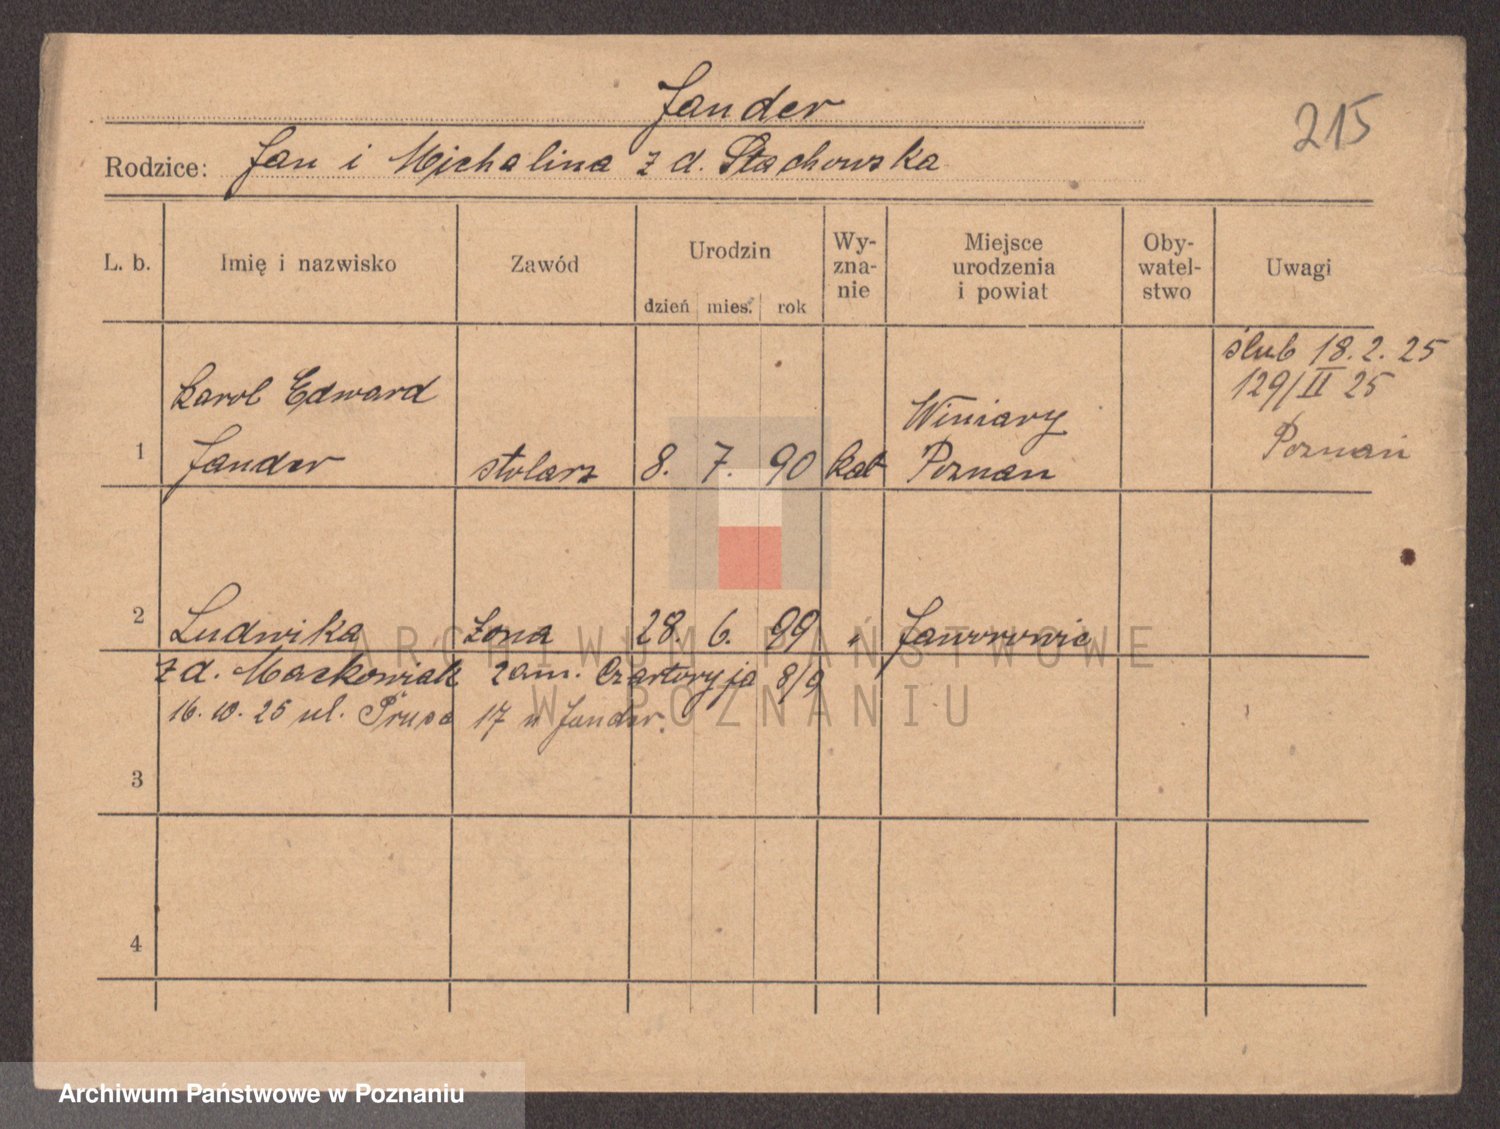 Jander
215
Rodzice: Jan i Michalina z d. Stachowska
L. b. Imię i nazwisko Zawód Urodzin Wy-zna-nie Miejsce urodzenia i powiat Oby-watel-stwo Uwagi
dzień mies. rok
ślub 18. 2. 25
129/II 25
Poznań
Karol Edward
1 Jander stolarz 8. 7. 90 kat Winiary
Poznan
2 Ludwika żona 28. 6. 99 " Jaworowic
z d. Maćkowiak zam. Czartoryja 8/9
16. 10. 25 ul. Prusa 17 u Jander.
3
4
ARCHIWUM PAŃSTWOWE
W POZNANIU
Archiwum Państwowe w Poznaniu